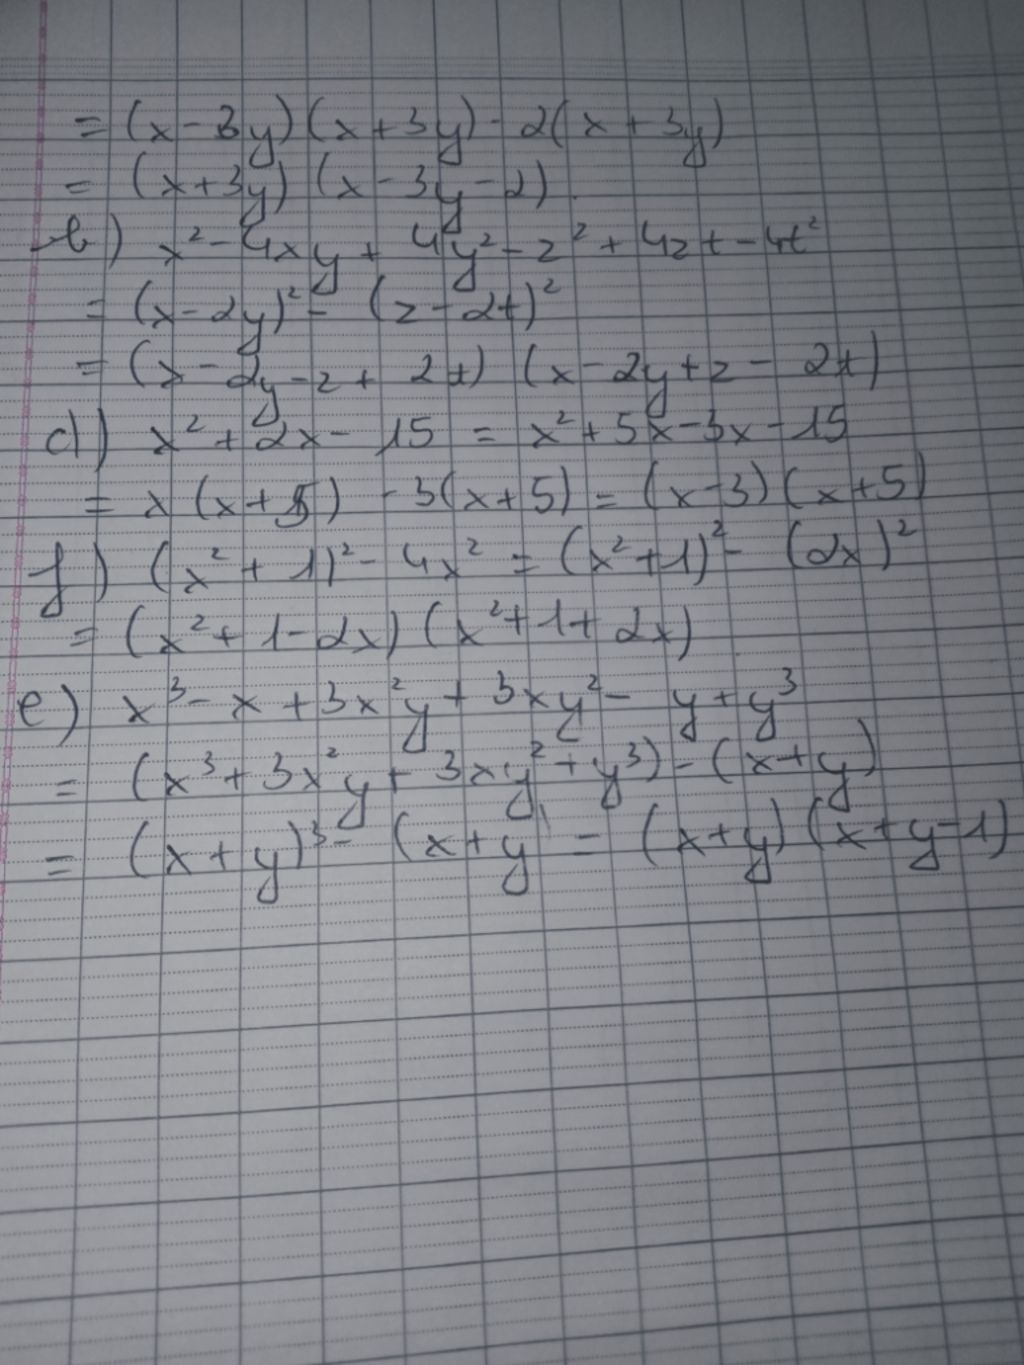 = (x - 3y)(x + 3y) - 2(x + 3y)
= (x+3y) (x - 3y - 2).
b) x² - 4xy + 4y² - z² + 4zt - 4t²
= (x - 2y)² - (z - 2t)²
= (x - 2y - z + 2t) (x - 2y + z - 2t)
d) x² + 2x - 15 = x² + 5x - 3x - 15
= x (x + 5) - 3(x + 5) = (x - 3)(x + 5)
f) (x² + 1)² - 4x² = (x² + 1)² - (2x)²
= (x² + 1 - 2x) (x² + 1 + 2x)
e) x³ - x + 3x²y + 3xy² - y + y³
= (x³ + 3x²y + 3xy² + y³) - (x + y)
= (x + y)³ - (x + y) = (x + y)(x + y - 1)